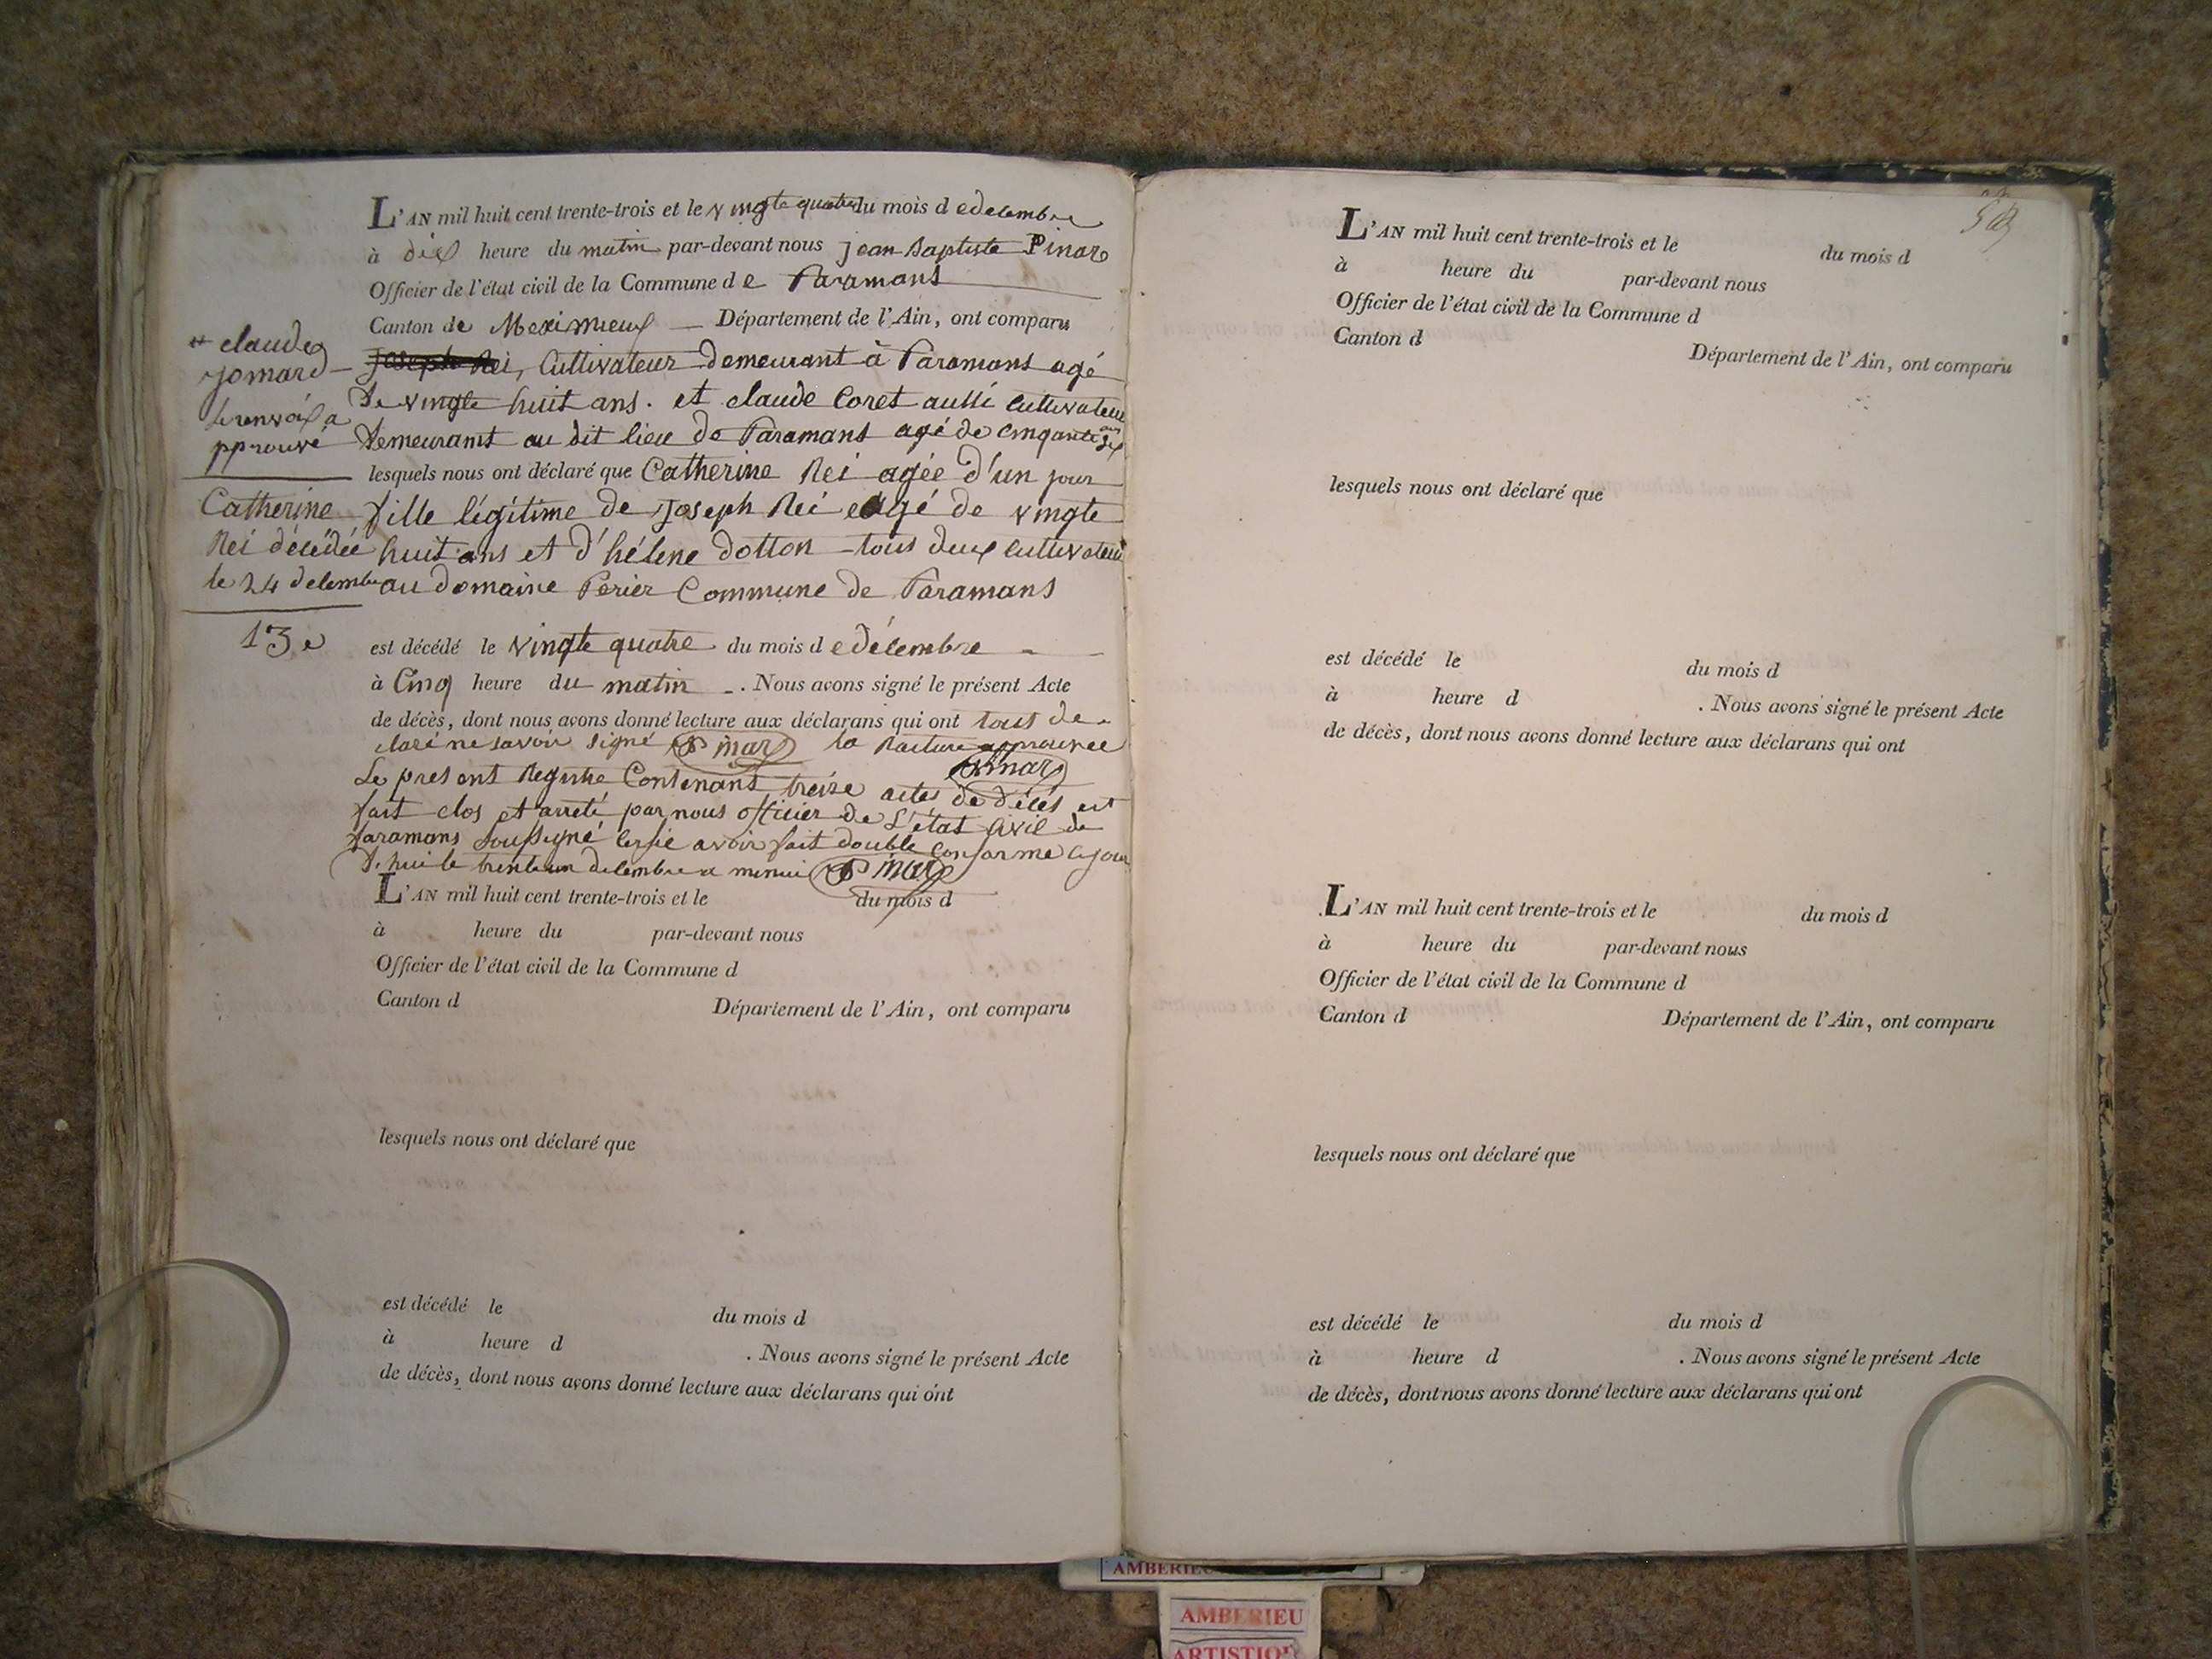 L'AN mil huit cent trente-trois et le vingte quatre du mois d e decembre
à dix heure du matin par-devant nous jean Baptiste Pinar
Officier de l'état civil de la Commune d e Paramans
Canton de Meximieux Département de l'Ain, ont comparu
claude
jomard
Joseph Rei, Cultivateur demeurant à Paramans agé
de vingte huit ans. et claude Coret aussi cultivateur
le renvoix a
pprouvé
demeurant au dit lieu de Paramans agé de cinqante six ans
lesquels nous ont déclaré que Catherine Rei agée d'un jour
Catherine
Rei décédée
le 24 decembre
13e
fille légitime de joseph Rei agé de vingte
huit ans et d'héléne dotton tous deux cultivateur
au domaine Perier Commune de Paramans
est décédé le vingte quatre du mois d e décembre
à Cinq heure du matin . Nous avons signé le présent Acte
de décès, dont nous avons donné lecture aux déclarans qui ont tous de
claré ne savoir signé Pinar la rature approuvee
Pinar
Le present Registre Contenant treize actes de décés est
fait clos et arreté par nous officier de L'état civil de
Paramans soussigné avoir fait double conforme ce jour
d'hui le trente un decembre a minui Pinar
L'AN mil huit cent trente-trois et le du mois d
à heure du par-devant nous
Officier de l'état civil de la Commune d
Canton d Département de l'Ain, ont comparu
lesquels nous ont déclaré que
est décédé le du mois d
à heure d . Nous avons signé le présent Acte
de décès, dont nous avons donné lecture aux déclarans qui ont
L'AN mil huit cent trente-trois et le du mois d
à heure du par-devant nous
Officier de l'état civil de la Commune d
Canton d Département de l'Ain, ont comparu
lesquels nous ont déclaré que
est décédé le du mois d
à heure d . Nous avons signé le présent Acte
de décès, dont nous avons donné lecture aux déclarans qui ont
L'AN mil huit cent trente-trois et le du mois d
à heure du par-devant nous
Officier de l'état civil de la Commune d
Canton d Département de l'Ain, ont comparu
lesquels nous ont déclaré que
est décédé le du mois d
à heure d . Nous avons signé le présent Acte
de décès, dont nous avons donné lecture aux déclarans qui ont
AMBERIEU
AMBERIEU